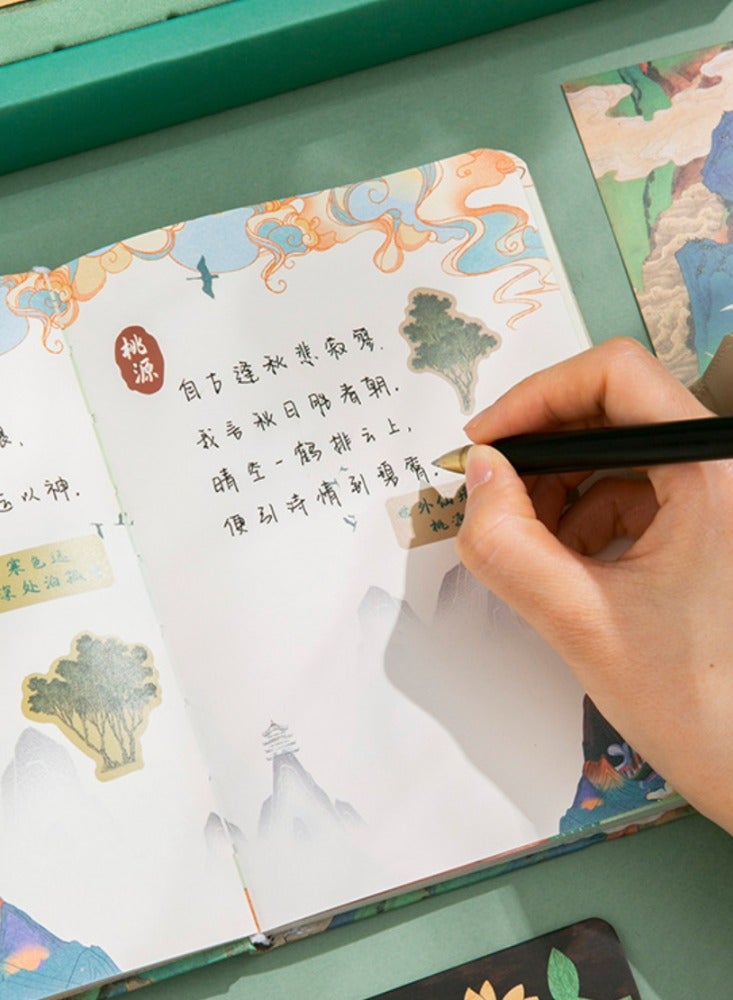 以神.
寒色远
深处泊孤
桃源
自古逢秋悲寂寥,
我言秋日胜春朝.
晴空一鹤排云上,
便引诗情到碧霄.
外仙
桃源